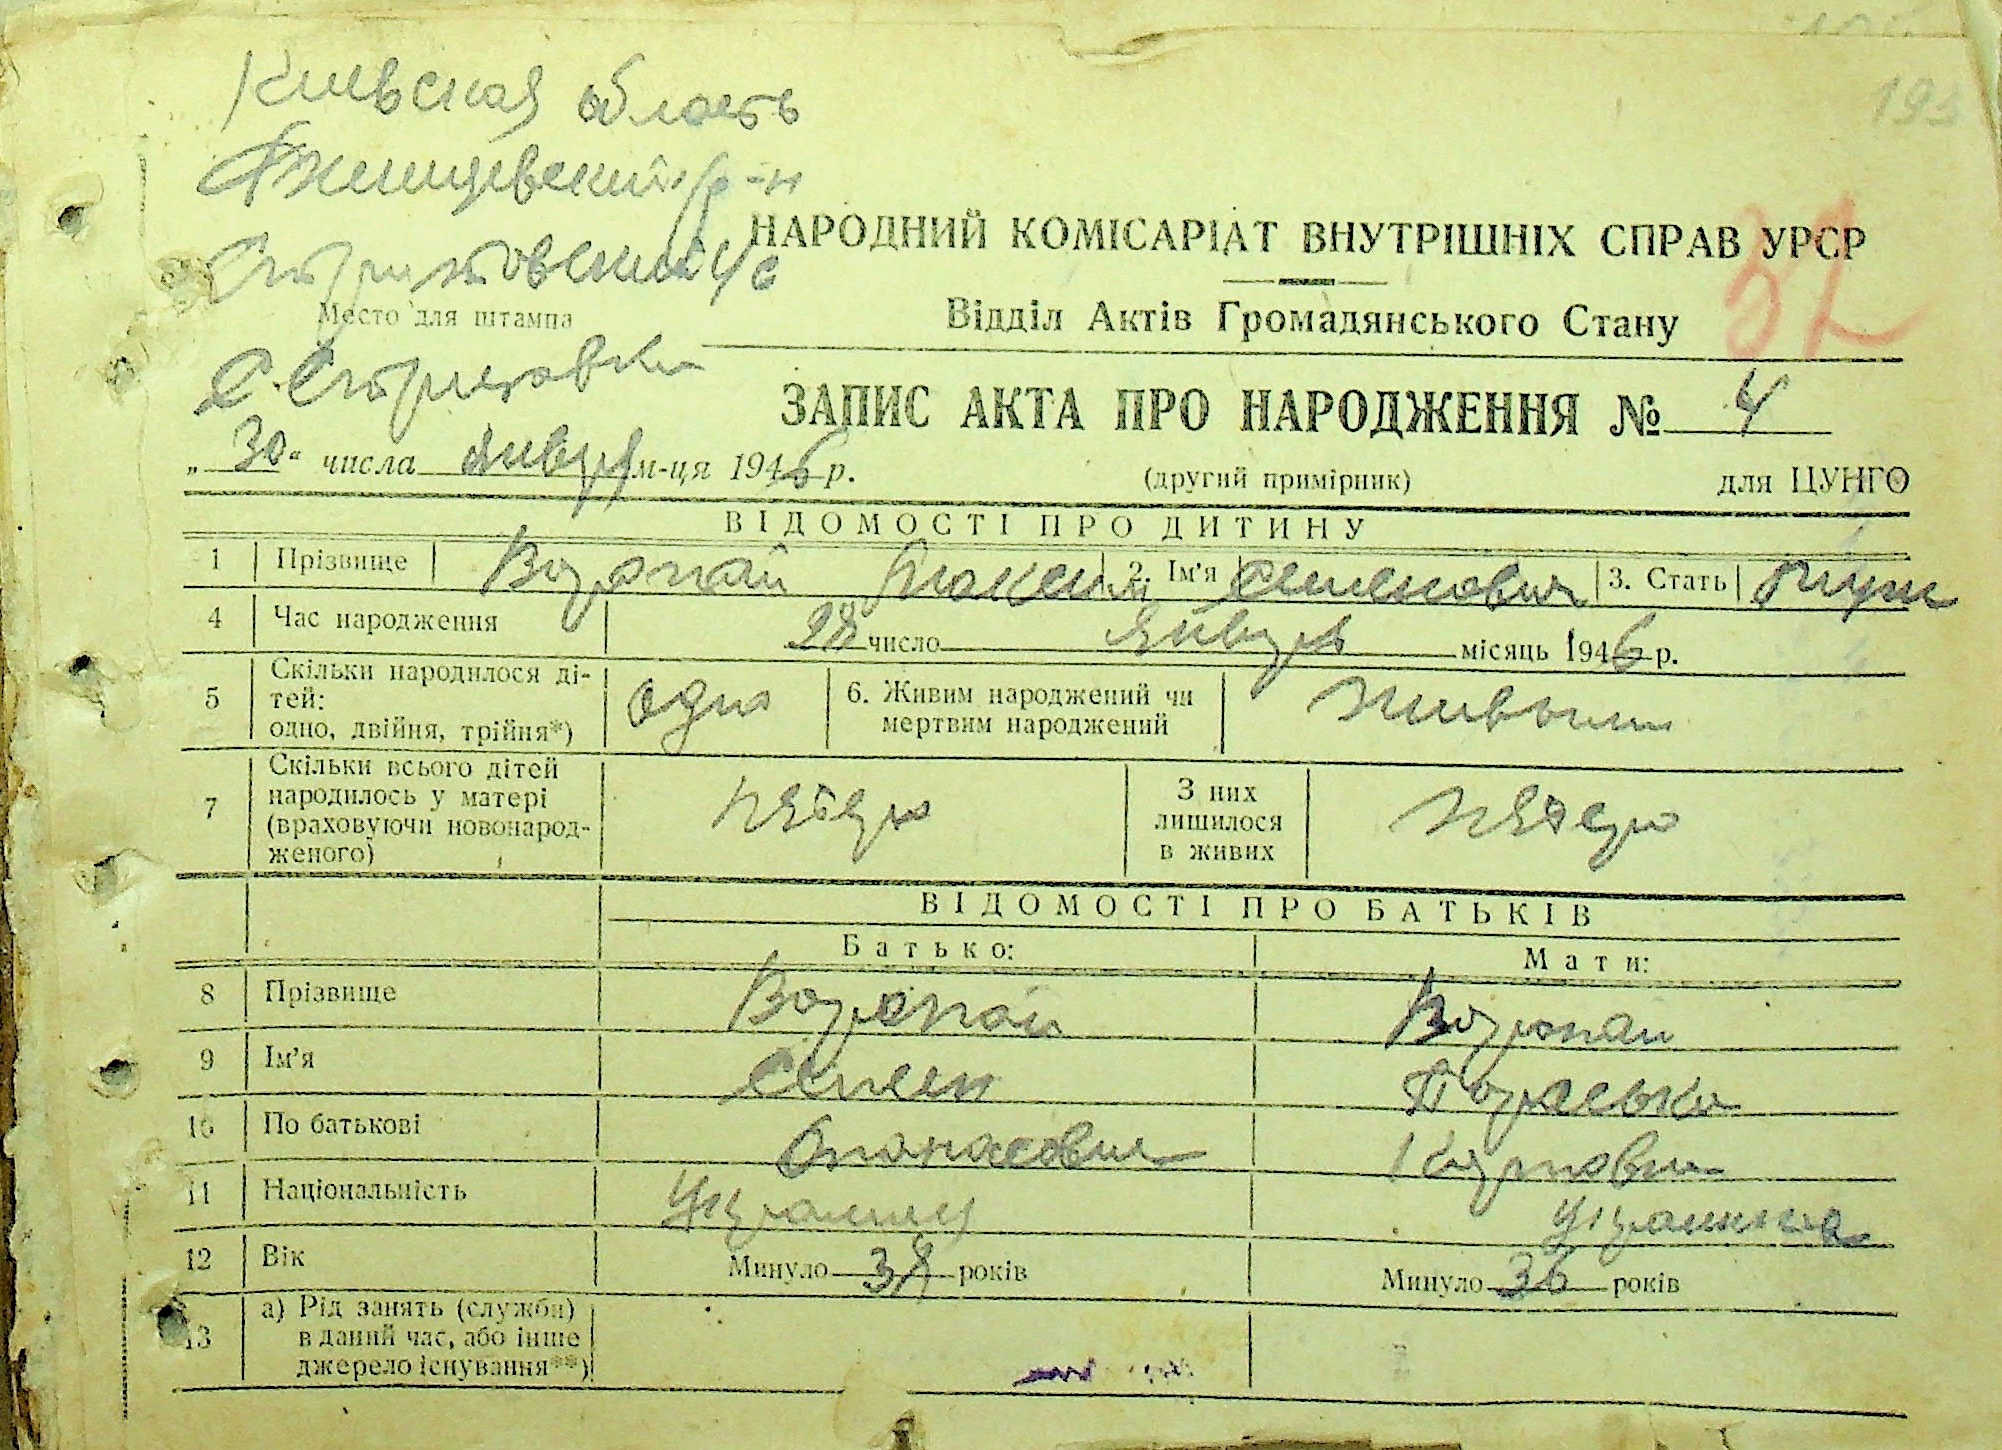 193
Киевская область
Ржищевский р-н
Стритовский с/с
НАРОДНИЙ КОМІСАРІАТ ВНУТРІШНІХ СПРАВ УРСР
32
Место для штампа
Відділ Актів Громадянського Стану
С. Стритовка
ЗАПИС АКТА ПРО НАРОДЖЕННЯ № 4
„30“ числа января м-ця 1946 р.
(другий примірник) для ЦУНГО
ВІДОМОСТІ ПРО ДИТИНУ
1 Прізвище Воропай Максим 2. Ім'я Семенович 3. Стать муж
4 Час народження 28 число января місяць 1946 р.
5 Скільки народилося ді-
тей:
одно, двійня, трійня*) одно
6. Живим народжений чи
мертвим народжений живым
7 Скільки всього дітей
народилось у матері
(враховуючи новонарод-
женого) пятеро
З них
лишилося
в живих пятеро
ВІДОМОСТІ ПРО БАТЬКІВ
Батько: Мати:
8 Прізвище Воропай Воропай
9 Ім'я Семен
10 По батькові Опанасович Карповна
11 Національність Украинец Украинка
12 Вік Минуло 38 років Минуло 36 років
13 а) Рід занять (служби)
в даний час, або інше
джерело існування**)